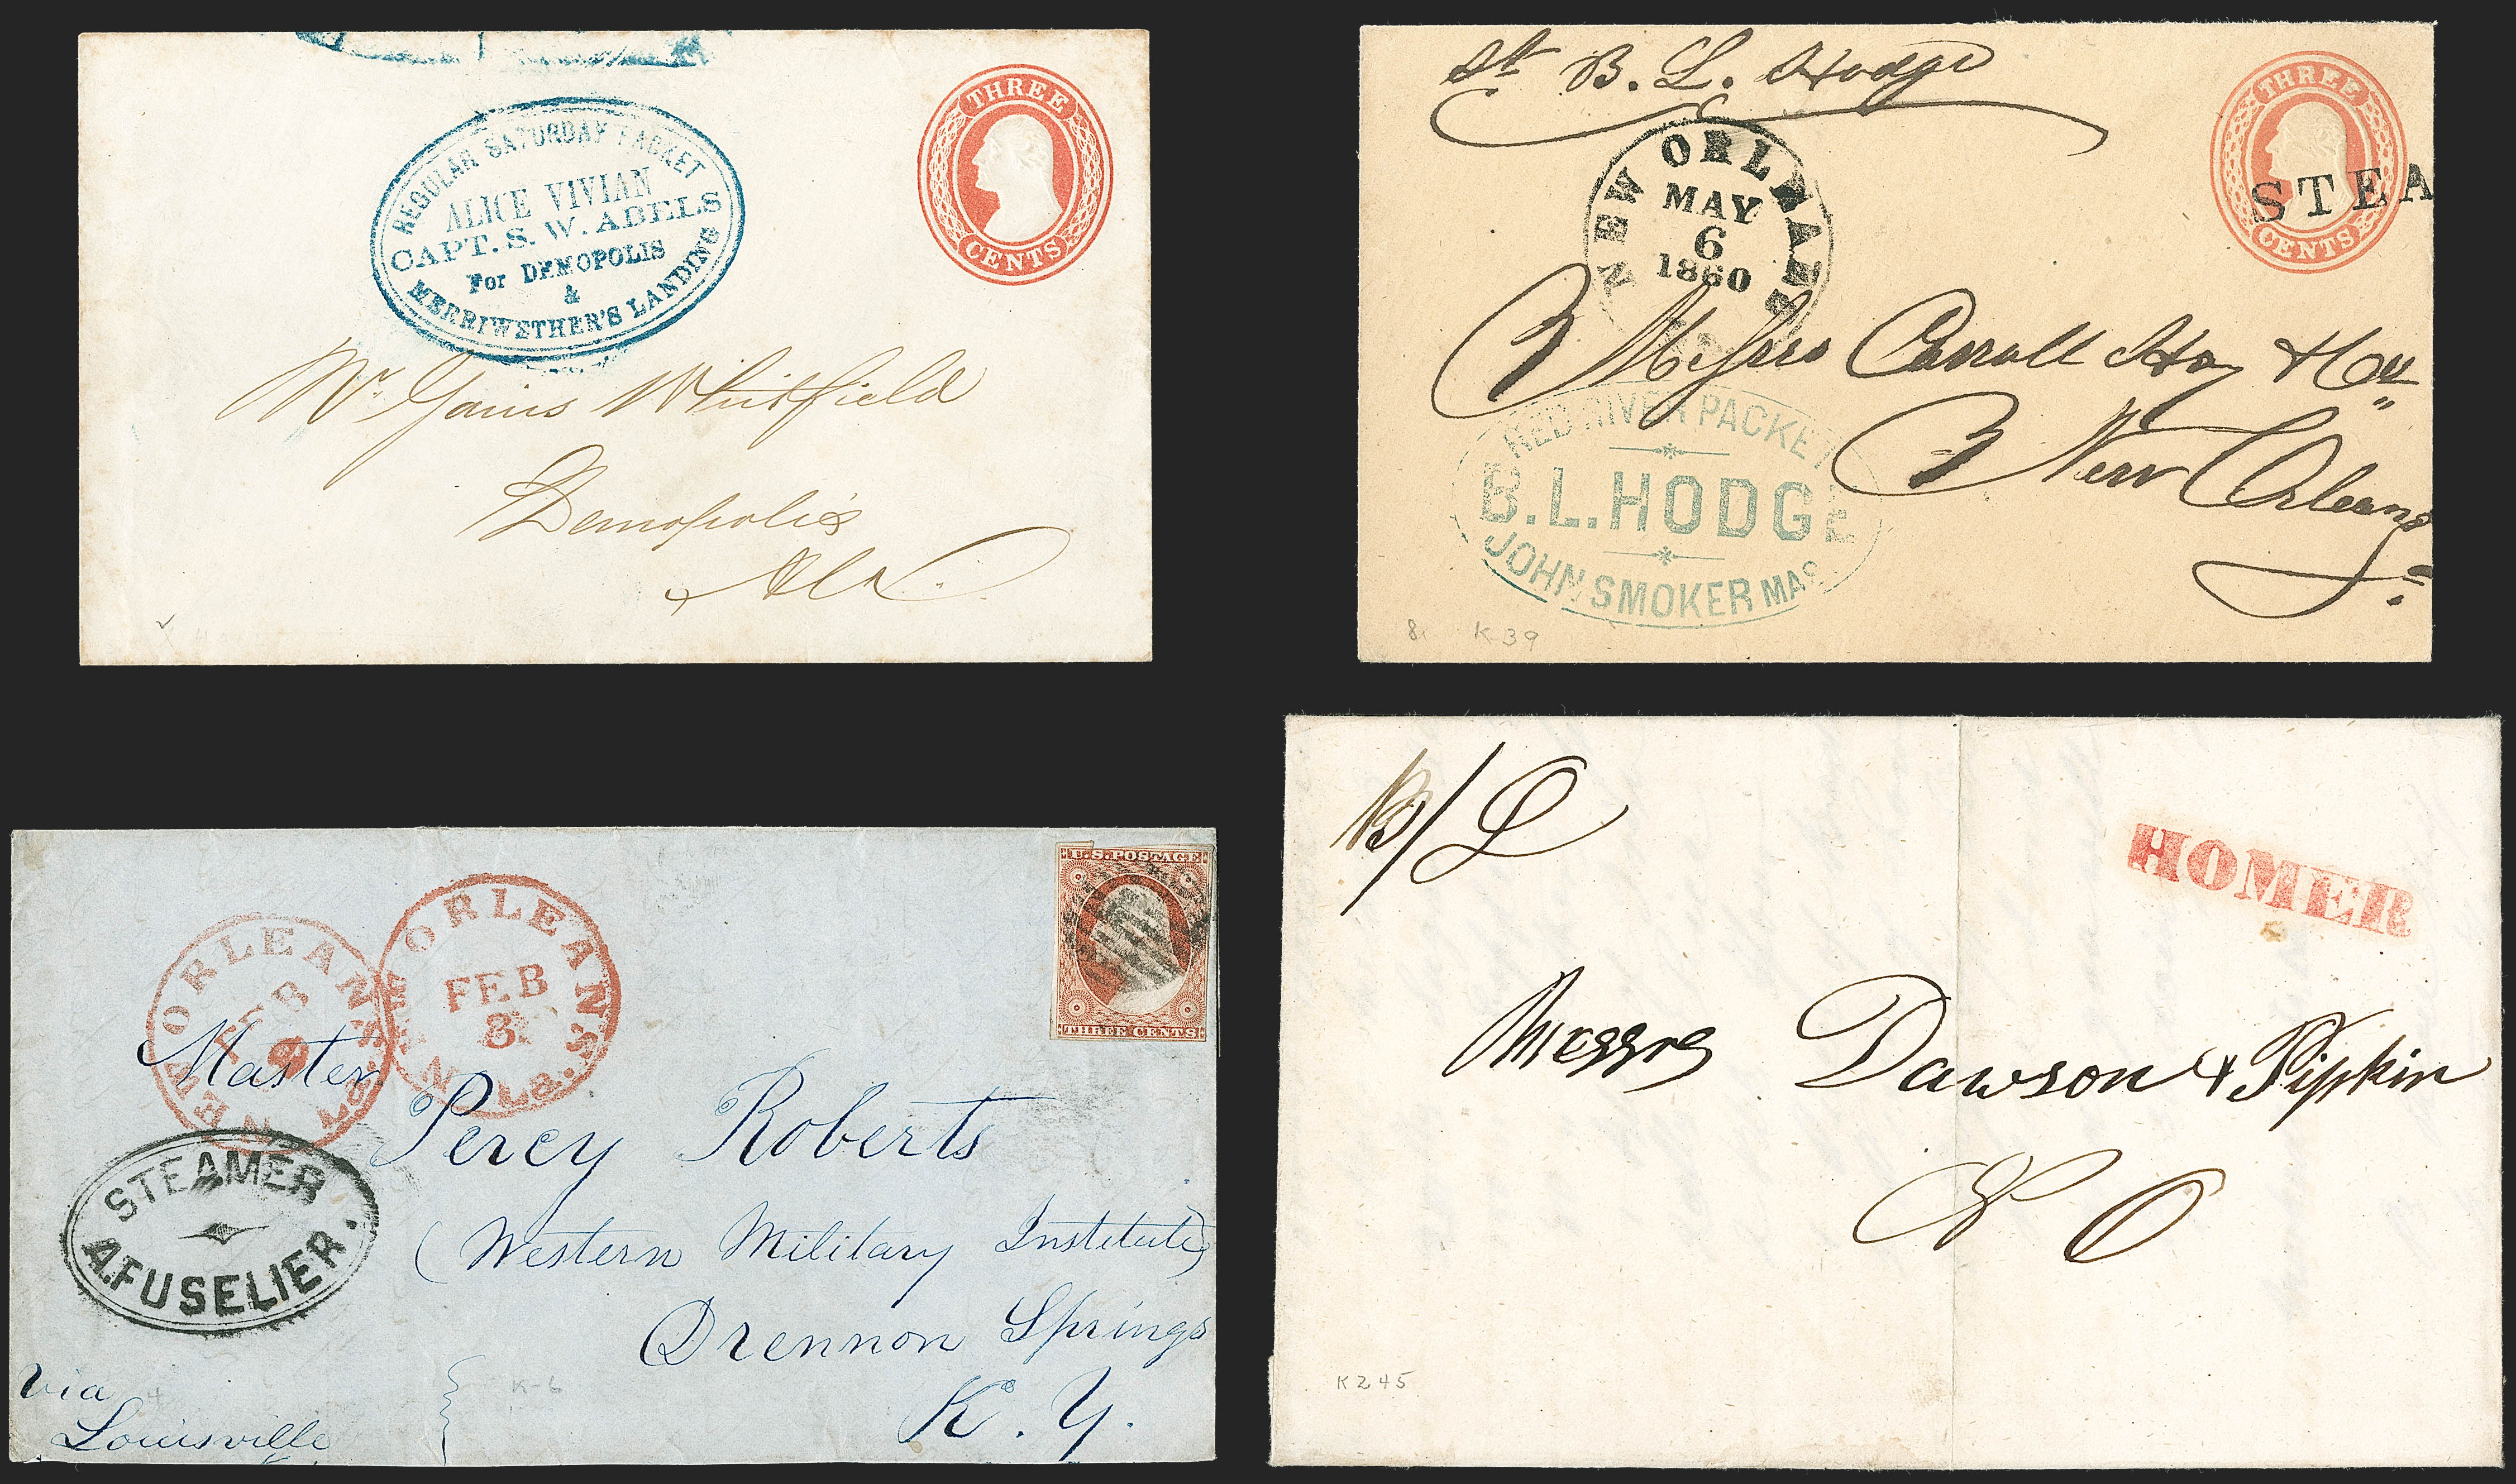 REGULAR SATURDAY PACKET
ALICE VIVIAN
CAPT. S. W. ABELS
For DEMOPOLIS
&
MERRIWETHER'S LANDING
THREE
CENTS
Mr. Gaius Whitfield
Demopolis
Ala.
St B. L. Hodge
NEW ORLEANS
MAY
6
1860
THREE
CENTS
STEA
Messrs Carroll Hoy & Co
New Orleans
RED RIVER PACKET
B.L. HODGE
JOHN SMOKER MAS
8. K 39
NEW ORLEANS La.
FEB
NEW ORLEANS La.
FEB
8
U.S. POSTAGE
THREE CENTS
Master
Percy Roberts
(Western Military Institute)
Drennon Springs
K. Y.
STEAMER
A. FUSELIER.
Via
Louisville
4
K-6
B/L
HOMER
Messrs Dawson & Pipkin
N O
K 245